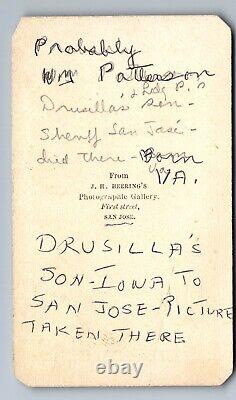 Probably
Wm Patterson
Drusilla's Son -
Sheriff San José -
died there - Born
Va
VA.
From
J. H. HEERING'S
Photographic Gallery,
First street,
SAN JOSE.
DRUSILLA'S
SON - IOWA TO
SAN JOSE - PICTURE
TAKEN THERE
© ebay.com